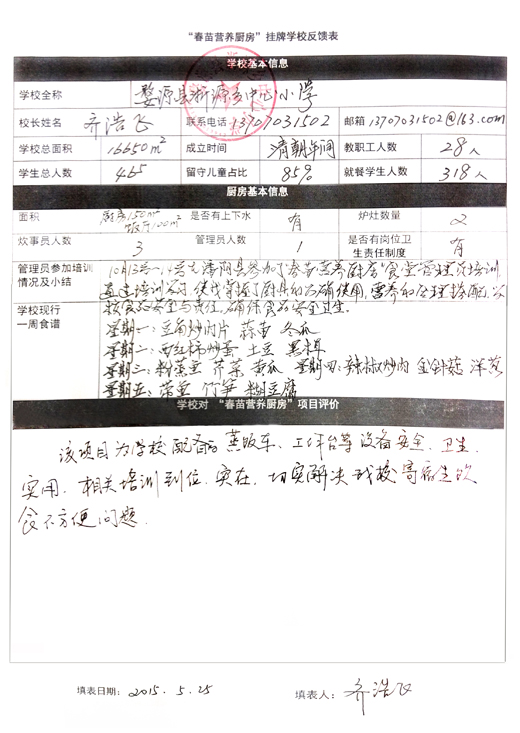 “春苗营养厨房”挂牌学校反馈表
学校基本信息
学校全称 婺源县浙源乡中心小学
校长姓名 齐浩飞 联系电话 13707031502 邮箱 13707031502@163.com
学校总面积 16650m² 成立时间 清朝年间 教职工人数 28人
学生总人数 465 留守儿童占比 85% 就餐学生人数 318人
厨房基本信息
面积 厨房150m² 餐厅100m² 是否有上下水 有 炉灶数量 2
炊事员人数 3 管理员人数 1 是否有岗位卫生责任制度 有
管理员参加培训情况及小结 10月13号—14号去 阳县参加了“春苗营养厨房”食堂管理员培训
通过培训学习,使我掌握了厨具的正确使用,营养的合理搭配,以
及食品安全与责任,确保食品安全卫生.
学校现行一周食谱
星期一:豆角炒肉片 蒜苗 冬瓜
星期二:西红柿炒蛋 土豆 黑木耳
星期三:粉蒸 芹菜 黄瓜 星期四:辣椒炒肉 金针菇 洋葱
星期五: 竹笋 豆腐
学校对 “春苗营养厨房”项目评价
该项目为学校配备的蒸饭车、工作台等设备安全、卫生、
实用.相关培训到位.实在.切实解决我校寄宿生饮
食不方便问题.
填表日期:2015.5.25 填表人:齐浩飞